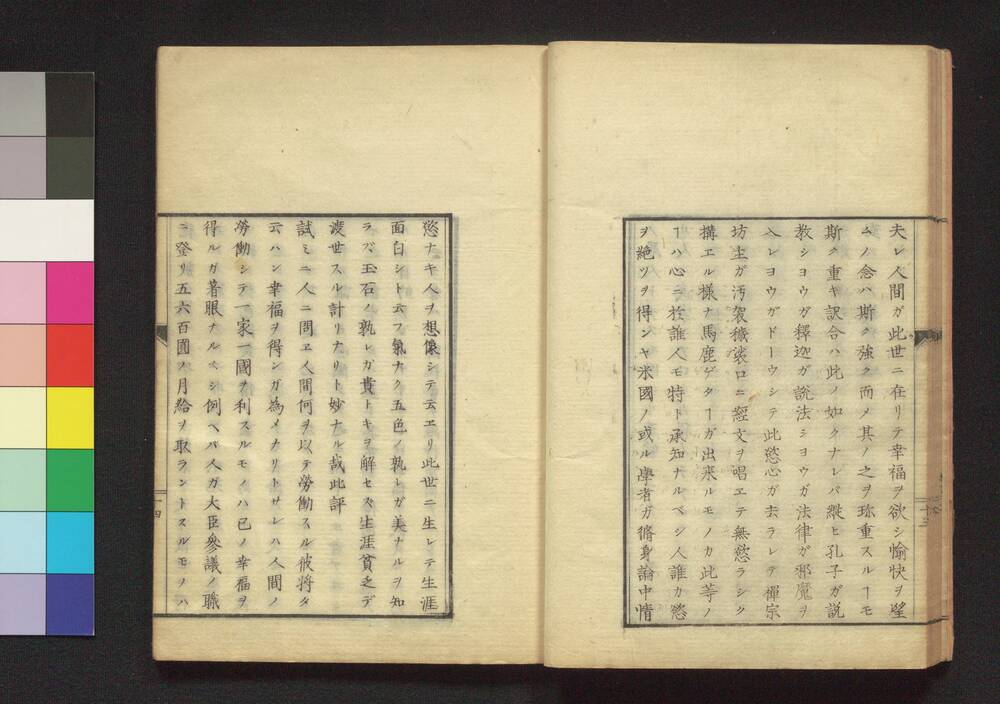 夫レ人間ガ此世ニ在リテ幸福ヲ欲シ愉快ヲ望
ムノ念ハ斯ク強ク而メ其ノ之ヲ珍重スルヿモ
斯ク重キ訳合ハ此ノ如クナレバ縦ヒ孔子ガ説
教シヨウガ釋迦ガ説法シヨウガ法律ガ邪魔ヲ
入レヨウガドーウシテ此慾心ガ去ラレテ禪宗
坊主ガ汚袈穢裟ロニ經文ヲ唱エテ無慾ラシク
搆エル様ナ馬鹿ゲタヿガ出来ルモノカ此等ノ
ヿハ心ニ於誰人モ特ト承知ナルベシ人誰カ慾
ヲ絶ツヲ得ンヤ米國ノ或ル學者ガ脩身論中情
十三
慾ナキ人ヲ想像シテ云エリ此世ニ生レテ生涯
面白シト云フ氣ナク五色ノ孰レガ美ナルヲ知
ラズ玉石ノ孰レガ貴トキヲ解セス生涯貧乏デ
渡世スル計リナリト妙ナル哉此評
試ミニ人ニ問ヱ人間何ヲ以テ勞働スル彼將タ
云ハン幸福ヲ得ンガ為メナリトサレハ人間ノ
勞働シテ一家一國ヲ利スルモノハ已ノ幸福ヲ
得ルガ著眼ナルベシ例ヘバ人ガ大臣參議ノ職
ニ登リ五六百圓ノ月給ヲ取ラントスルモノハ
十四